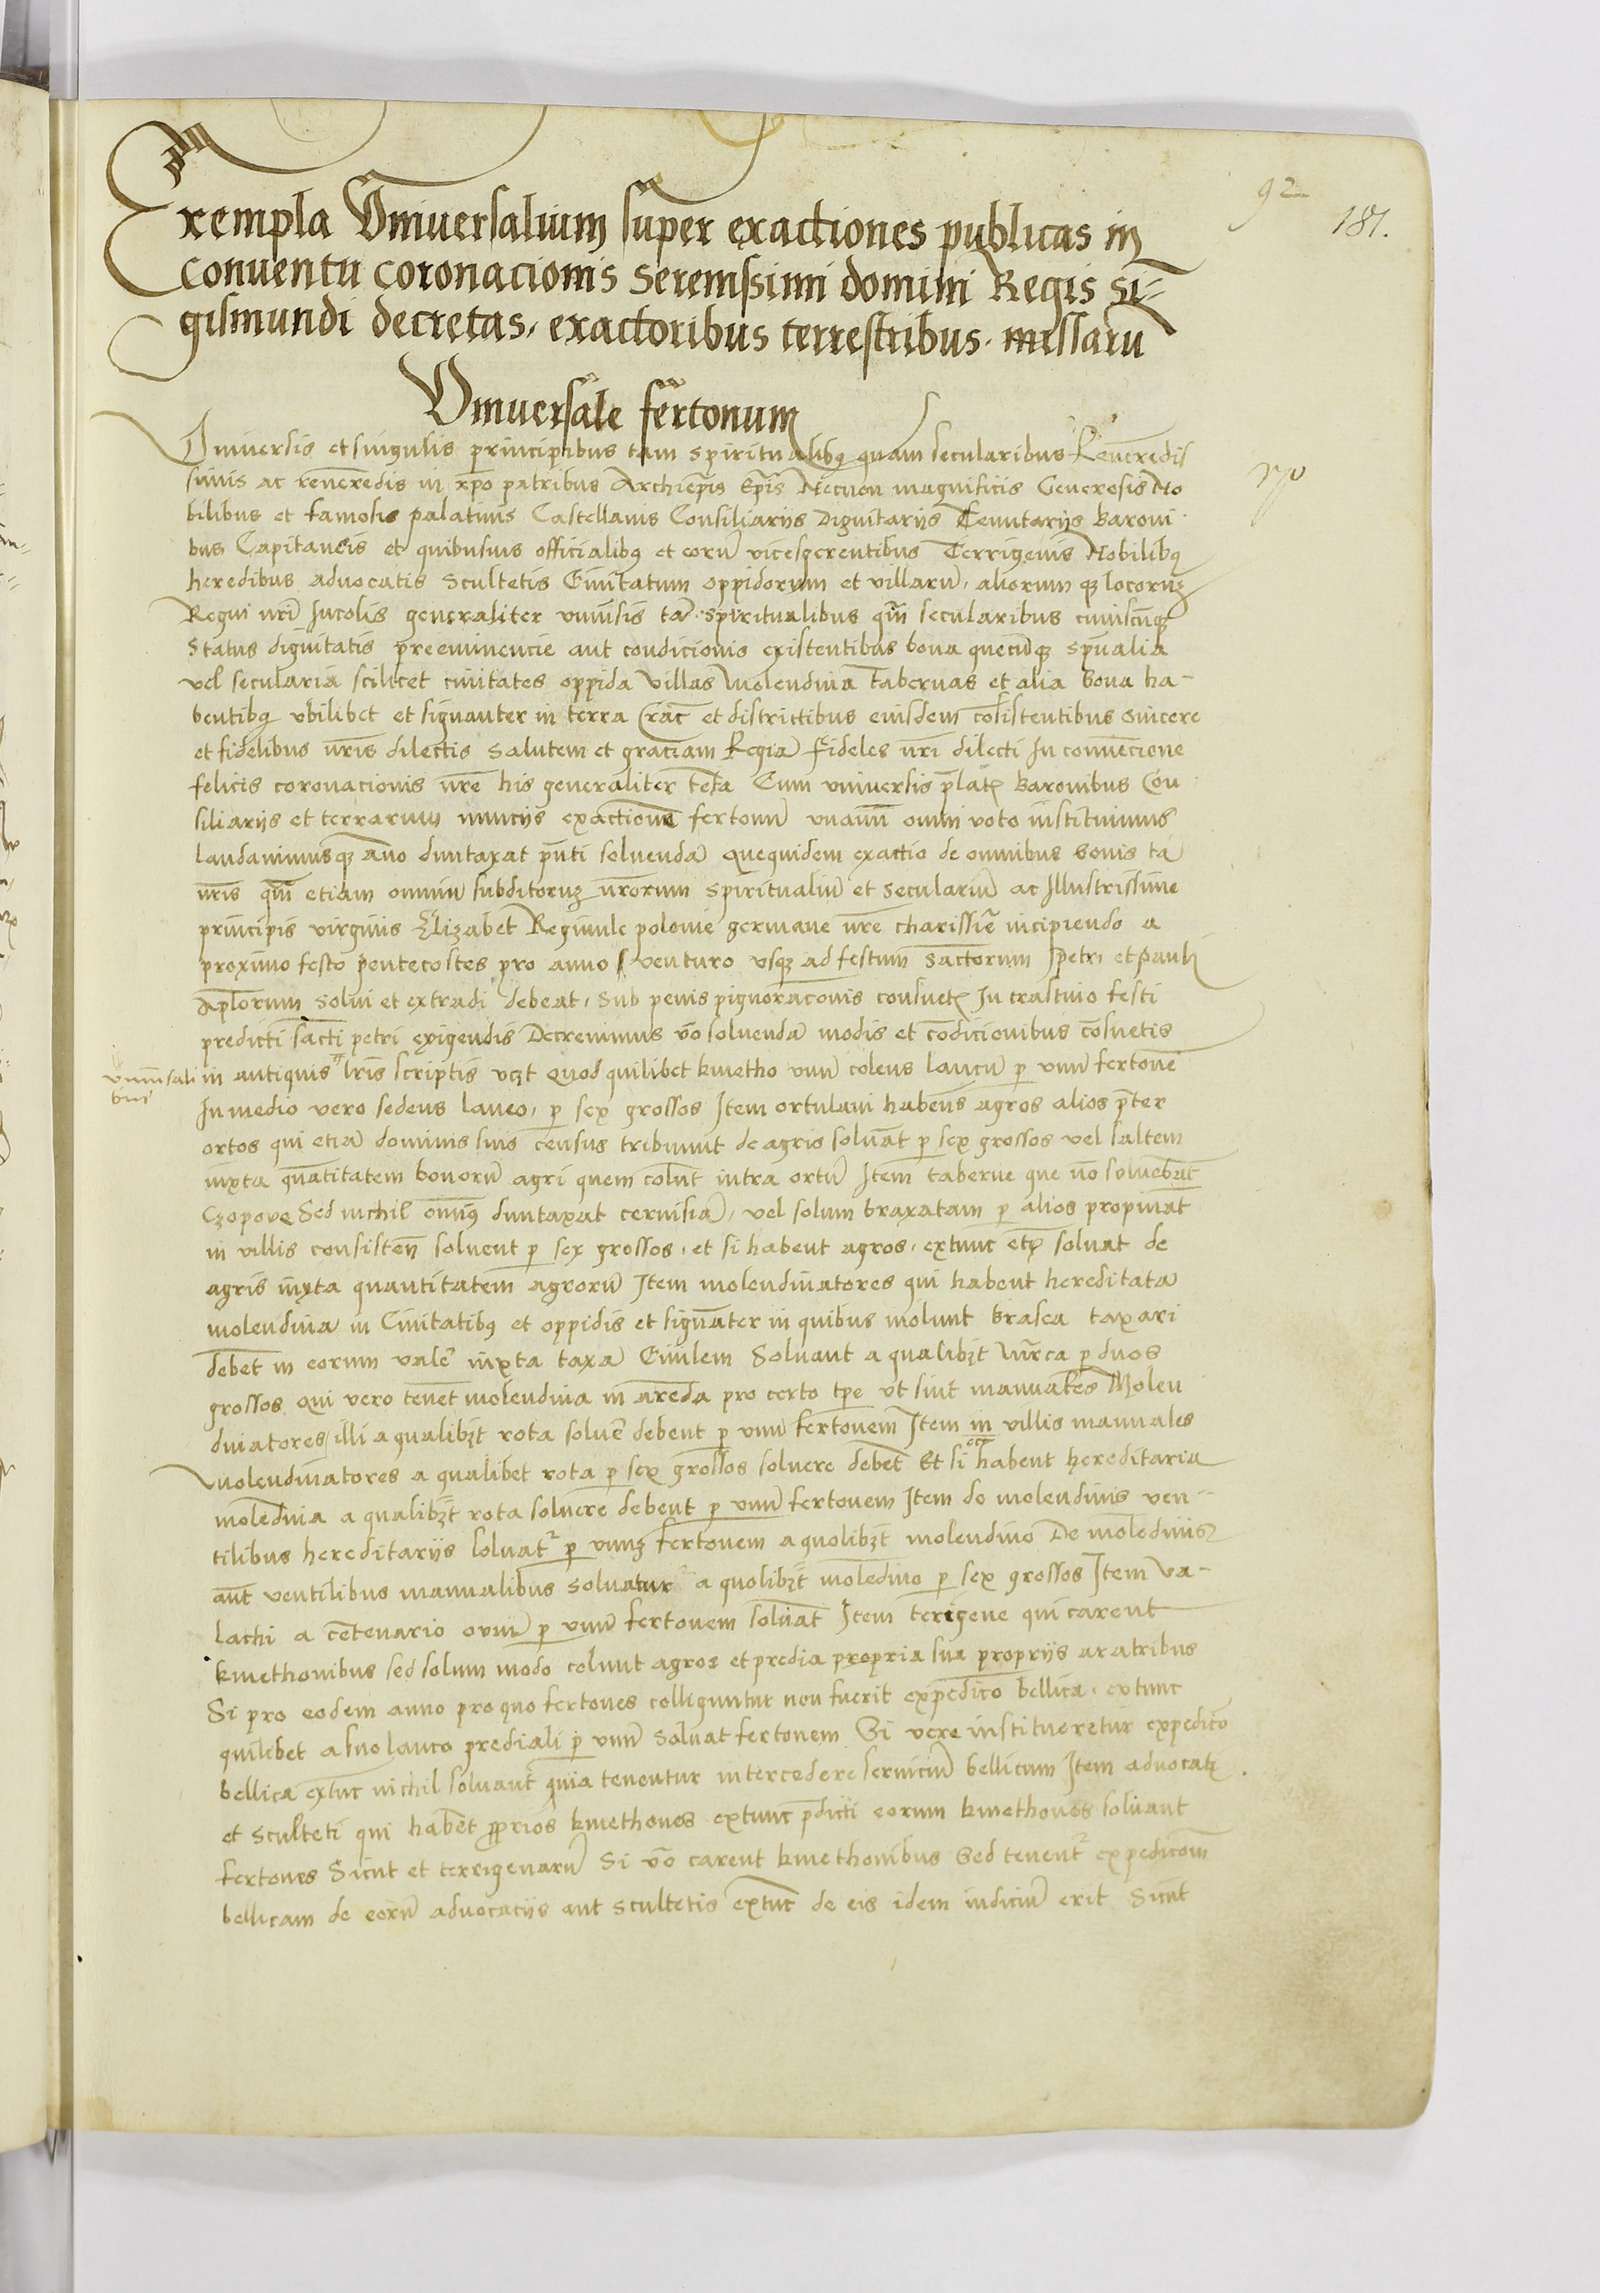 92
181.
Exempla Vniversalium super exactiones publicas in
conuentu coronacionis Serenissimi domini Regis Si=
gismundi decretas, exactoribus terrestribus missarũ
Vniuersale fertonum
Vniuersis et singulis principibus tam spiritualibꝫ quam secularibus Reueredis
simis ac reueredis in xpo patribus Archiepis Epis Necnon magnificis Generosis No
bilibus et famosis palatinis Castellanis Consiliarijs Dignitarijs Tenutarijs baroni
bus Capitaneis et quibusuis officialibꝫ et eorũ vicesgerentibus Terrigenis Nobilibꝫ
heredibus aduocatis Scultetis Ciuitatum oppidorum et villarũ, aliorumqꝫ locorum
Regni nri Incolis generaliter vniũsis tã spiritualibus qm̃ secularibus cuiuscũqꝫ
Status dignitatis preeminencie aut condicionis existentibus bona quecũqꝫ spũalia
vel secularia scilicet ciuitates oppida villas molendina tabernas et alia bona ha-
bentibꝫ vbilibet et signanter in terra Crac̃ et districtibus eiusdem cõsistentibus sincere
et fidelibus nr̃is dilectis salutem et graciam Regiã fideles nr̃i dilecti In convencione
felicis coronacionis nr̃e his generaliter teñta Cum vniuersis p̃latis baronibus Con
siliarijs et terrarum nuncijs exactionẽ fertonũ vnanĩ omniũ voto instituimus
laudauimusqꝫ año duntaxat p̃nti soluendã Quequidem exactio de omnibus bonis tã
nr̃is qm̃ etiam omniũ subditorum nr̃orum spiritualiũ et seculariũ ac Illustrissime
principis virginis Elizabet Reginule polonie germane nr̃e charissie incipiendo a
proximo festo pentecostes pro anno venturo vsqꝫ ad festum Sanctorum Petri et Pauli
Aplorum solui et extradi debeat, Sub penis pignoraconis consuetis In crastino festi
predicti Sancti petri exigendis Decreuimus v̄o soluendã modis et cõdicionibus cõsuetis
vniũsali
bus
in antiquis lr̃is scriptis vczt quod quilibet kmetho vnũ colens laneũ p vnũ fertonẽ
In medio vero sedens laneo, p sex grossos Item ortulani habens agros alios p̃ter
ortos qui etiã dominis suis census tribuunt de agris soluãt p sex grossos vel saltem
iuxta quãtitatem bonorũ agri quem colũt intra ortũ Item taberne que nõ soluebãt
Czopowe Sed nichil ominꝫ duntaxat ceruisiã, vel solum braxatam p alios propinãt
in villis consisteñ soluent p sex grossos, et si habent agros, extunc etiã soluãt de
agris iuxta quantitatem agrorũ Item molendinatores qui habent hereditata
molendina in Ciuitatibꝫ et oppidis et signãter in quibus molunt brasea taxari
debet in eorum valoẽ iuxta taxã Ciuilem Soluant a qualibꝫt mr̃ca p duos
grossos qui vero tenet molendina in arẽda pro certo tpe vt sint manuales Molen
dinatores, illi a qualibꝫt rota soluẽ debent p vnũ fertonem Item in villis manuales
molendinatores a qualibet rota p sex grossos soluere debet Et si habent hereditaria
molẽdina a qualibꝫt rota soluere debent p vnũ fertonem Item de molendinis ven-
tilibus hereditarijs soluat p vnum fertonem a quolibꝫt molendino De molẽdinis
aũt ventilibus manualibus soluatur a quolibꝫt molẽdino p sex grossos Item va-
lachi a cẽtenario ouiũ p vnũ fertonem soluãt Item terigene qui carent
kmethonibus sed solum modo colunt agros et predia propria sua proprijs aratribus
Si pro eodem anno pro quo fertones colliguntur non fuerit expedico bellica, extunc
quilibet a suo laneo prediali p vnũ soluat fertonem Si vere institueretur expedico
bellica extũc nichil soluant quia tenentur intercedere seruiciũ bellicum Item aduocati
et Sculteti qui habẽt pprios kmethones extunc p̃dicti eorum kmethones soluant
fertones Sicut et terrigenarũ Si v̄o carent kmethonibus Sed tenent expedicom̃
bellicam de eorũ aduocacijs aut Scultetis extũc de eis idem iudiciũ erit Sicut